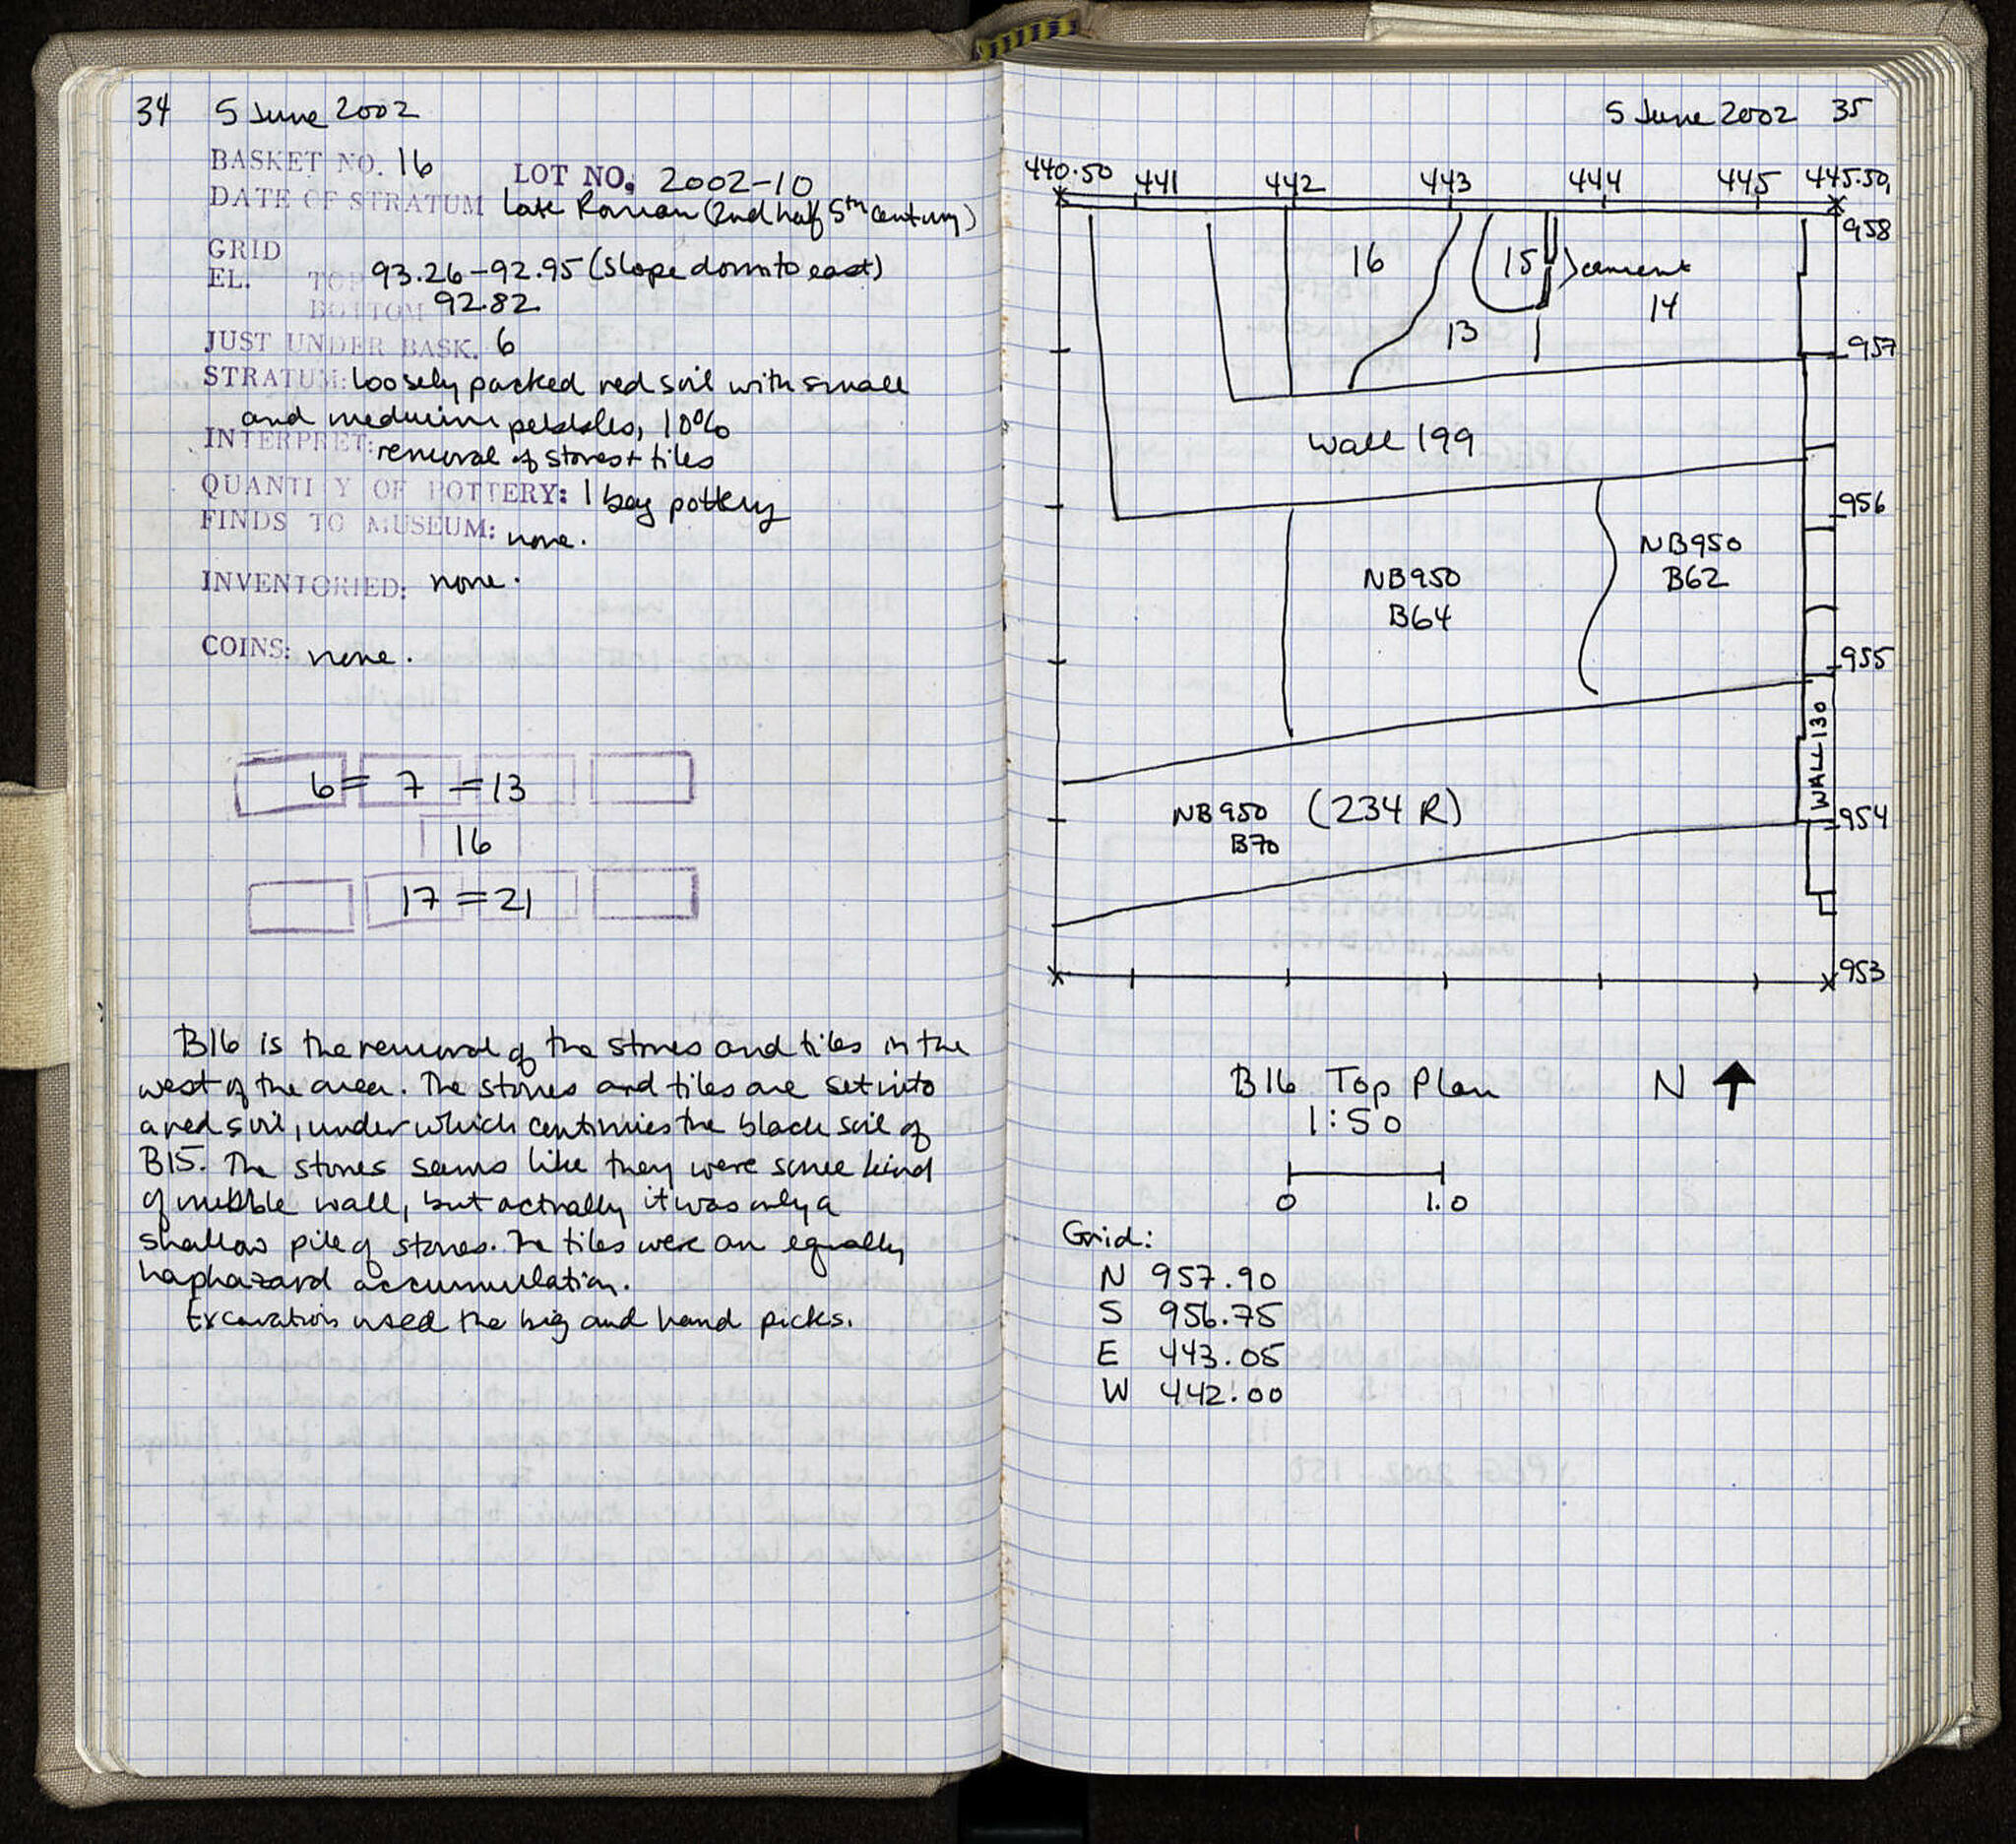 34 5 June 2002
BASKET NO. 16 LOT NO. 2002-10
DATE OF STRATUM Late Roman (2nd half 5th century)
GRID
EL. TOP 93.26-92.95 (slope down to east)
BOTTOM 92.82
JUST UNDER BASK. 6
STRATUM: loosely packed red soil with small
and medium pebbles, 10%
INTERPRET: removal of stones + tiles
QUANTITY OF POTTERY: 1 bag pottery
FINDS TO MUSEUM: none.
INVENTORIED: none.
COINS: none.
6 = 7 = 13
16
17 = 21
B16 is the removal of the stones and tiles in the
west of the area. The stones and tiles are set into
a red soil, under which continues the black soil of
B15. The stones seems like they were some kind
of rubble wall, but actually it was only a
shallow pile of stones. The tiles were an equally
haphazard accumulation.
Excavation used the big and hand picks.
5 June 2002 35
440.50 441 442 443 444 445 445.50
958
16 15 } cement
14
13
957
Wall 199
956
NB950
B62
NB950
B64
955
WALL 130
NB950 (234 R)
B70
954
953
B16 Top Plan N
1:50
0 1.0
Grid:
N 957.90
S 956.75
E 443.05
W 442.00